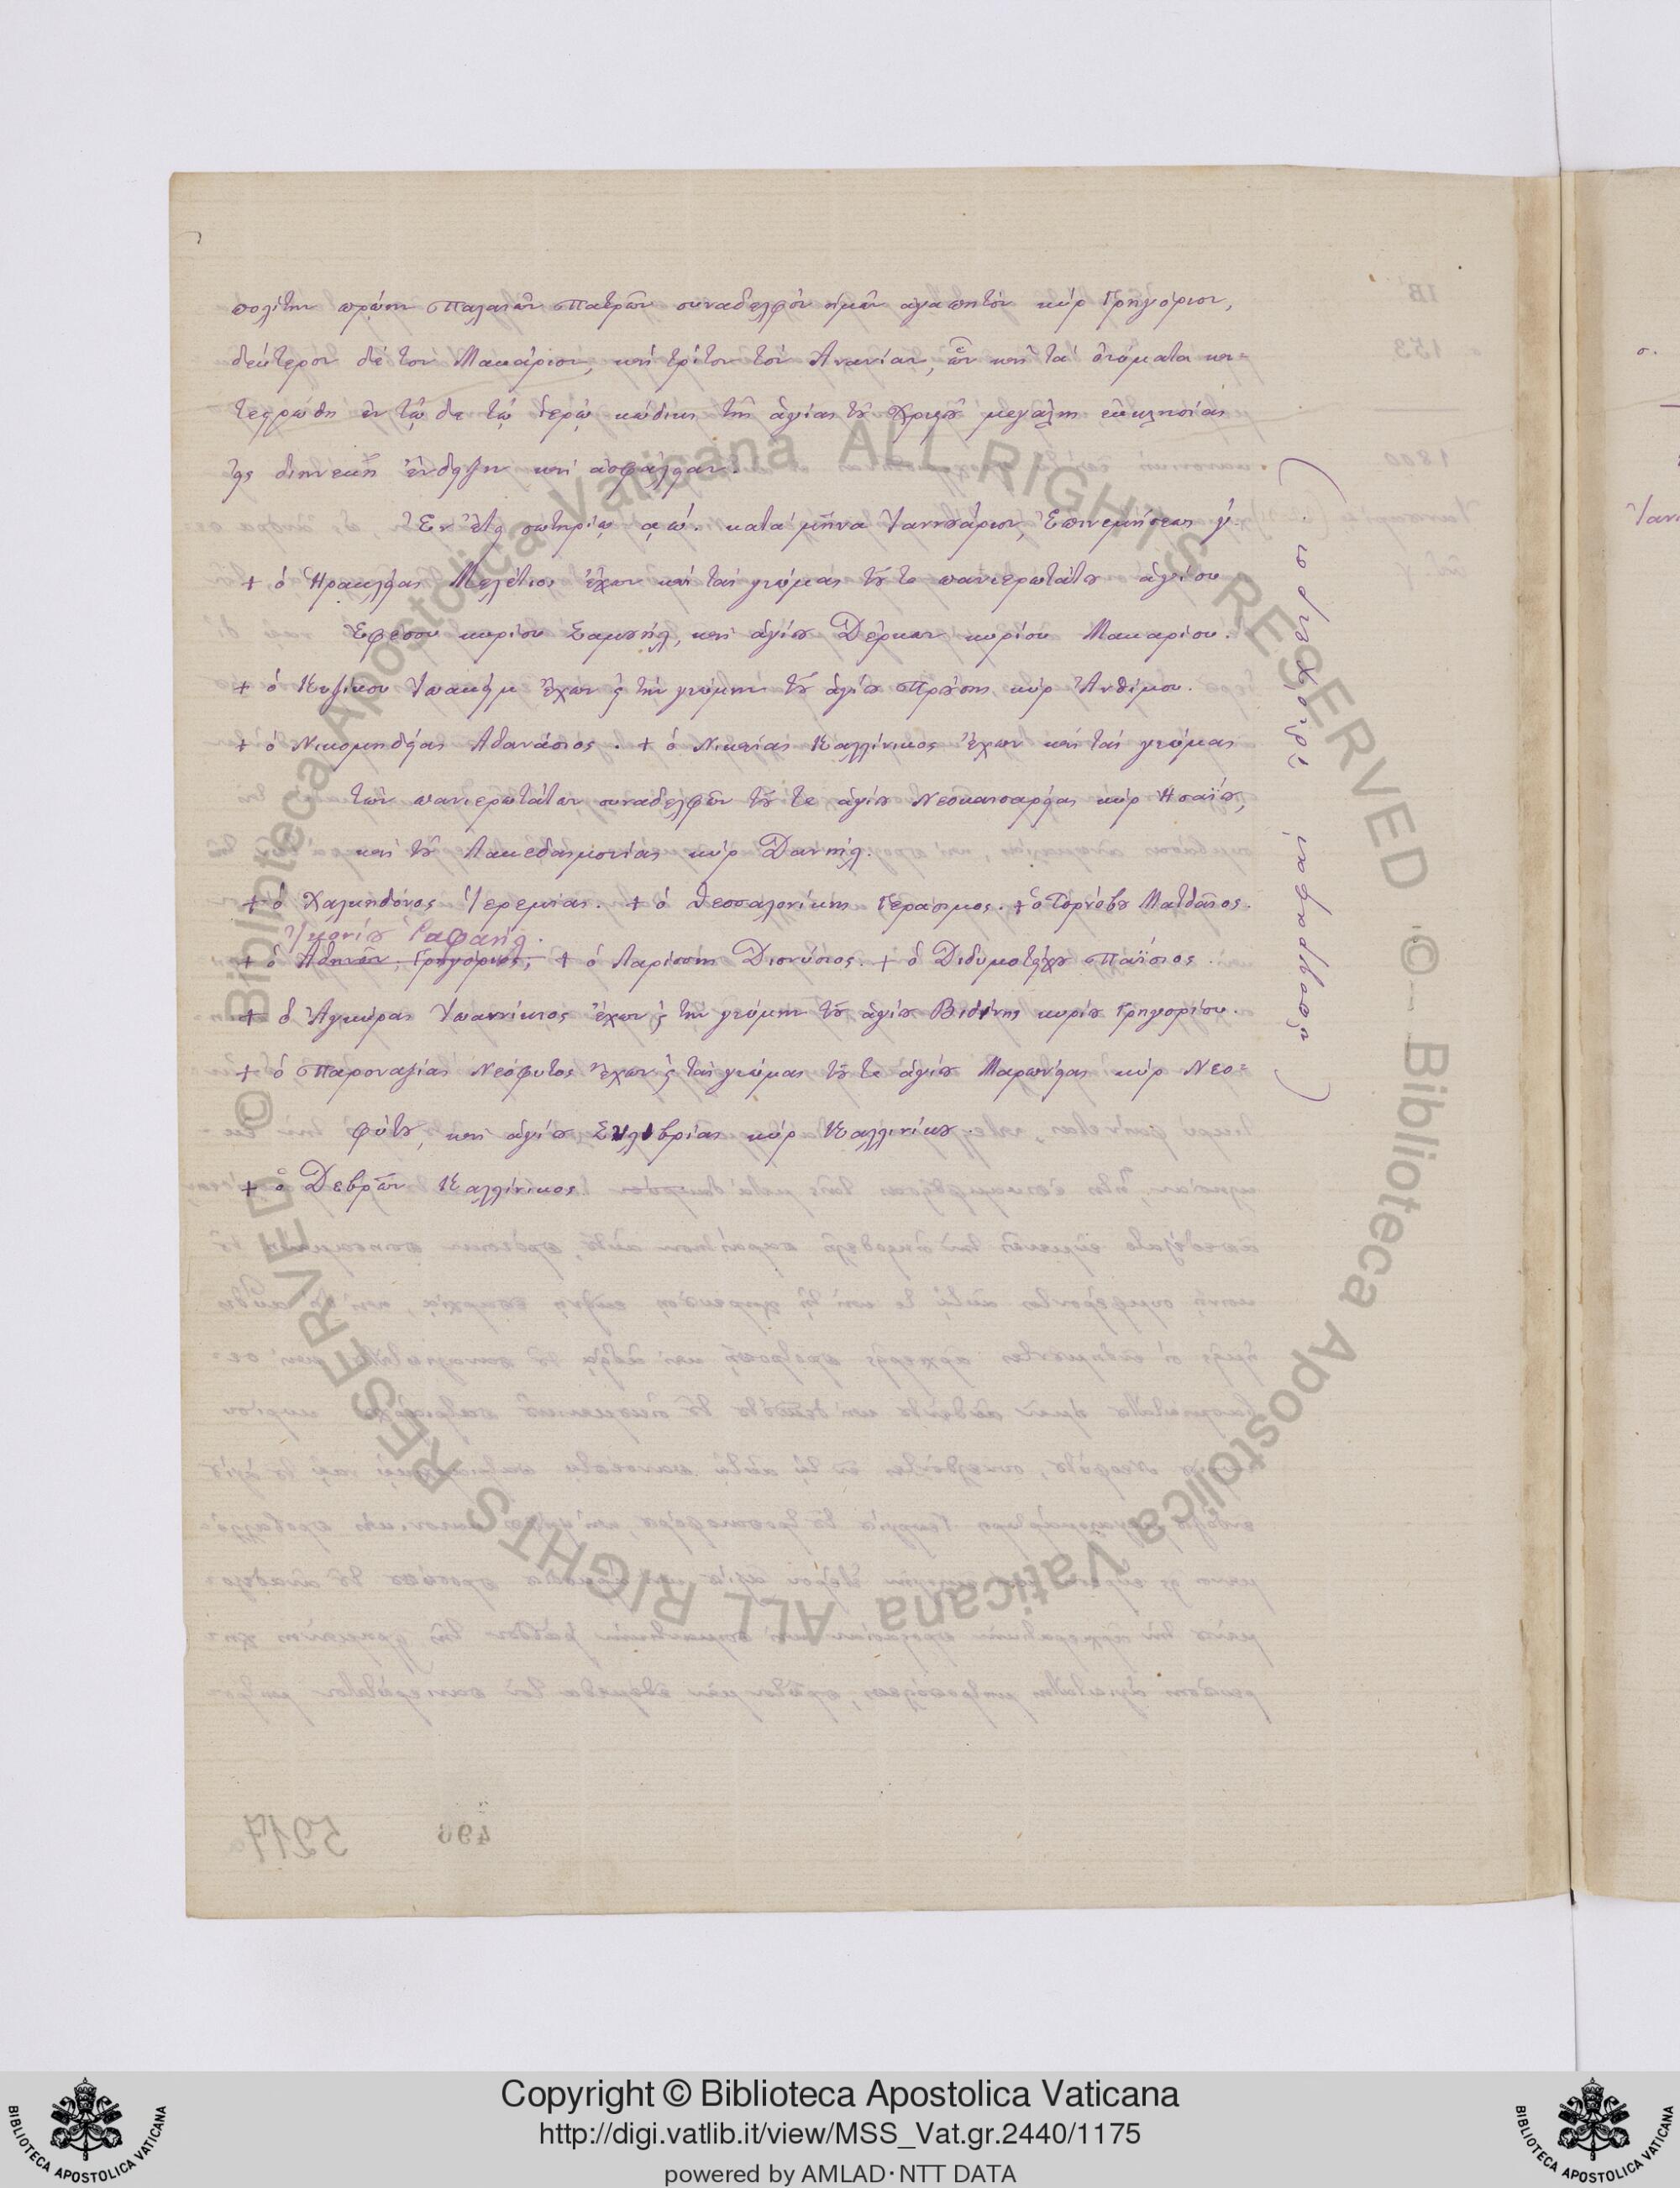 πολίτην πρώην Παλαιῶν Πατρῶν συναδελφὸν ἡμῶν ἀγαπητὸν κὺρ Γρηγόριον,
δεύτερον δὲ τὸν Μακάριον, καὶ τρίτον τὸν Ἀνανίαν, ὧν καὶ τὰ ὀνόματα κα-
τεστρώθη ἐν τῷδε τῷ ἱερῷ κώδικι τῆς ἁγίας τοῦ Χριστοῦ μεγάλης ἐκκλησίας
εἰς διηνεκῆ ἔνδειξιν καὶ ἀσφάλειαν.
Ἐν ἔτει σωτηρίῳ αω. κατὰ μῆνα Ἰαννουάριον, Ἐπινεμήσεως γ.
+ ὁ Ἡρακλείας Μελέτιος ἔχων καὶ τὰς γνώμας τοῦ τε πανιερωτάτου ἁγίου
Ἐφέσου κυρίου Σαμουήλ, καὶ ἁγίου Δέρκων κυρίου Μακαρίου.
+ ὁ Κυζίκου Ἰωακεὶμ ἔχων ϗ τὴν γνώμην τοῦ ἁγίου Προύσης κὺρ Ἀνθίμου.
+ ὁ Νικομηδείας Ἀθανάσιος. + ὁ Νικαίας Καλλίνικος ἔχων καὶ τὰς γνώμας
τῶν πανιερωτάτων συναδελφῶν τοῦ τε ἁγίου Νεοκαισαρείας κὺρ Ἡσαΐου,
καὶ τοῦ Λακεδαιμονίας κὺρ Δανιήλ.
+ ὁ Χαλκηδόνος Ἱερεμίας. + ὁ Θεσσαλονίκης Γεράσιμος. + ὁ Τορνόβου Ματθαῖος.
Ἰκονίου Ῥαφαήλ.
+ ὁ Ἀθηνῶν Γρηγόριος, + ὁ Λαρίσσης Διονύσιος. + ὁ Διδυμοτείχου Παΐσιος.
+ ὁ Ἀγκύρας Ἰωαννίκιος ἔχων ϗ τὴν γνώμην τοῦ ἁγίου Βιδύνης κυρίου Γρηγορίου.
+ ὁ Παροναξίας Νεόφυτος ἔχων ϗ τὰς γνώμας τοῦ τε ἁγίου Μαρωνείας κὺρ Νεο=
φύτου, καὶ ἁγίου Σηλυβρίας κὺρ Καλλινίκου.
+ ὁ Δεβρῶν Καλλίνικος
© Biblioteca Apostolica Vaticana ALL RIGHTS RESERVED © Biblioteca Apostolica Vaticana ALL RIGHTS RESERVED
Copyright © Biblioteca Apostolica Vaticana
http://digi.vatlib.it/view/MSS_Vat.gr.2440/1175
powered by AMLAD·NTT DATA
BIBLIOTECA APOSTOLICA VATICANA
BIBLIOTECA APOSTOLICA VATICANA